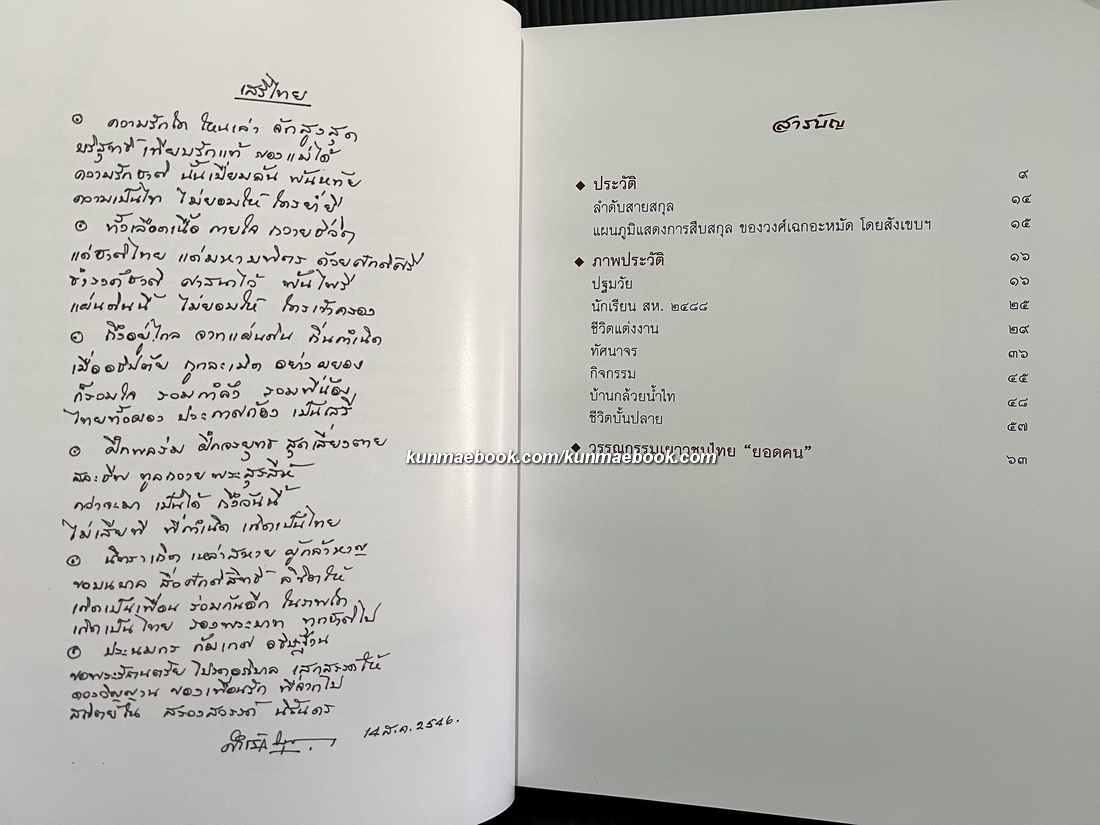 เสรีไทย
๏ ความรักใด ไหนเล่า จักสูงสุด
บริสุทธิ์ เทียบรักแท้ ของแม่ได้
ความรักชาติ นั้นเปี่ยมล้น พ้นหทัย
ความเป็นไท ไม่ยอมให้ ใครย่ำยี
๏ ทั้งเลือดเนื้อ กายใจ ถวายชีวิต
แด่ชาติไทย แด่มหามิตร ด้วยศักดิ์ศรี
ธำรงค์ชาติ ศาสนาไว้
แผ่นดินนี้ ไม่ยอมให้ ใครเข้าครอง
๏ ถึงอยู่ไกล จากแผ่นดิน ถิ่นกำเนิด
เมื่ออธิปตัย ถูกละเมิด อย่างผยอง
ก็รวมใจ รวมกำลัง รวมพี่น้อง
ไทยทั้งผอง ประกาศก้อง เป็นเสรี
๏ ฝึกพลร่ม ฝึกจรยุทธ สุดเสี่ยงตาย
สละชีพ ทูลถวาย พระ
กว่าจะมา เป็นได้ ถึงวันนี้
ไม่เสียที ที่กำเนิด เกิดเป็นไทย
๏ นิทราเถิด เหล่าสหาย ผู้กล้าหาญ
ขอบนบาล สิ่งศักดิ์สิทธิ์ ลิขิตให้
เกิดเป็นเพื่อน ร่วมกันอีก ในภพใด
เกิดเป็นไทย รองพระบาท ทุกชาติไป
๏ ประนมกร ก้มเกศ อธิษฐาน
ขอพระรัตนตรัย โปรดอภิบาล เสกสรรค์ให้
ดวงวิญญาณ ของเพื่อนรัก ที่จากไป
สถิตย์ใน สรวงสวรรค์ นิรันดร
14 ส.ค. 2546.
สารบัญ
◆ ประวัติ ๙
ลำดับสายสกุล ๑๔
แผนภูมิแสดงการสืบสกุล ของวงศ์เฉกอะหมัด โดยสังเขบฯ ๑๕
◆ ภาพประวัติ ๑๖
ปฐมวัย ๑๖
นักเรียน สห. ๒๔๘๘ ๒๕
ชีวิตแต่งงาน ๒๙
ทัศนาจร ๓๖
กิจกรรม ๔๕
บ้านกล้วยน้ำไท ๔๘
ชีวิตบั้นปลาย ๕๗
◆ วรรณกรรมเยาวชนไทย “ยอดคน” ๖๓
kunmaebook.com/kunmaebook.com